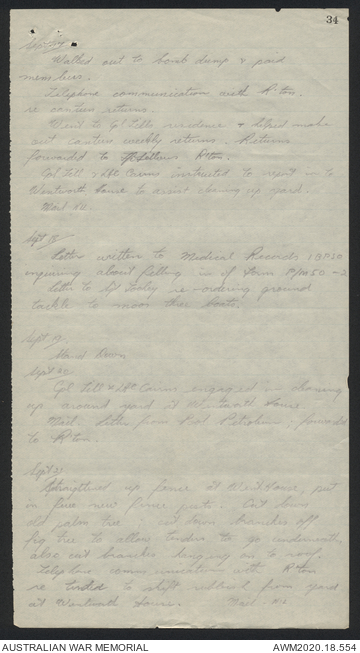 34
Walked out to bomb dump & paid
members.
Telephone communication with R'ton.
re canteen returns.
Went to Cpl Fells residence & helped make
out canteen weekly returns. Returns
forwarded to R'ton.
Cpl Fell & LAC Cairns instructed to report in to
Wentworth House to assist cleaning up yard.
Mail Nil.
Sept 18
Letter written to Medical Records
enquiring about filling in of Form P/M50
letter to Sgt re ordering ground
tackle to moor three boats.
Sept 19.
Stand Down
Sept 20
Cpl Fell & LAC Cairns engaged in cleaning
up around yard at Wentworth House
Mail. Letter from Petroleum, forwarded
to R'ton.
Sept 21
Straightened up fence at House, put
in five new fence posts. Cut down
old palm tree cut down branches off
fig tree to allow to go underneath,
also cut branches hanging on to roof.
Telephone communication with R'ton
re to shift rubbish from yard
at Wentworth House. Mail - Nil
AUSTRALIAN WAR MEMORIAL
AWM2020.18.554